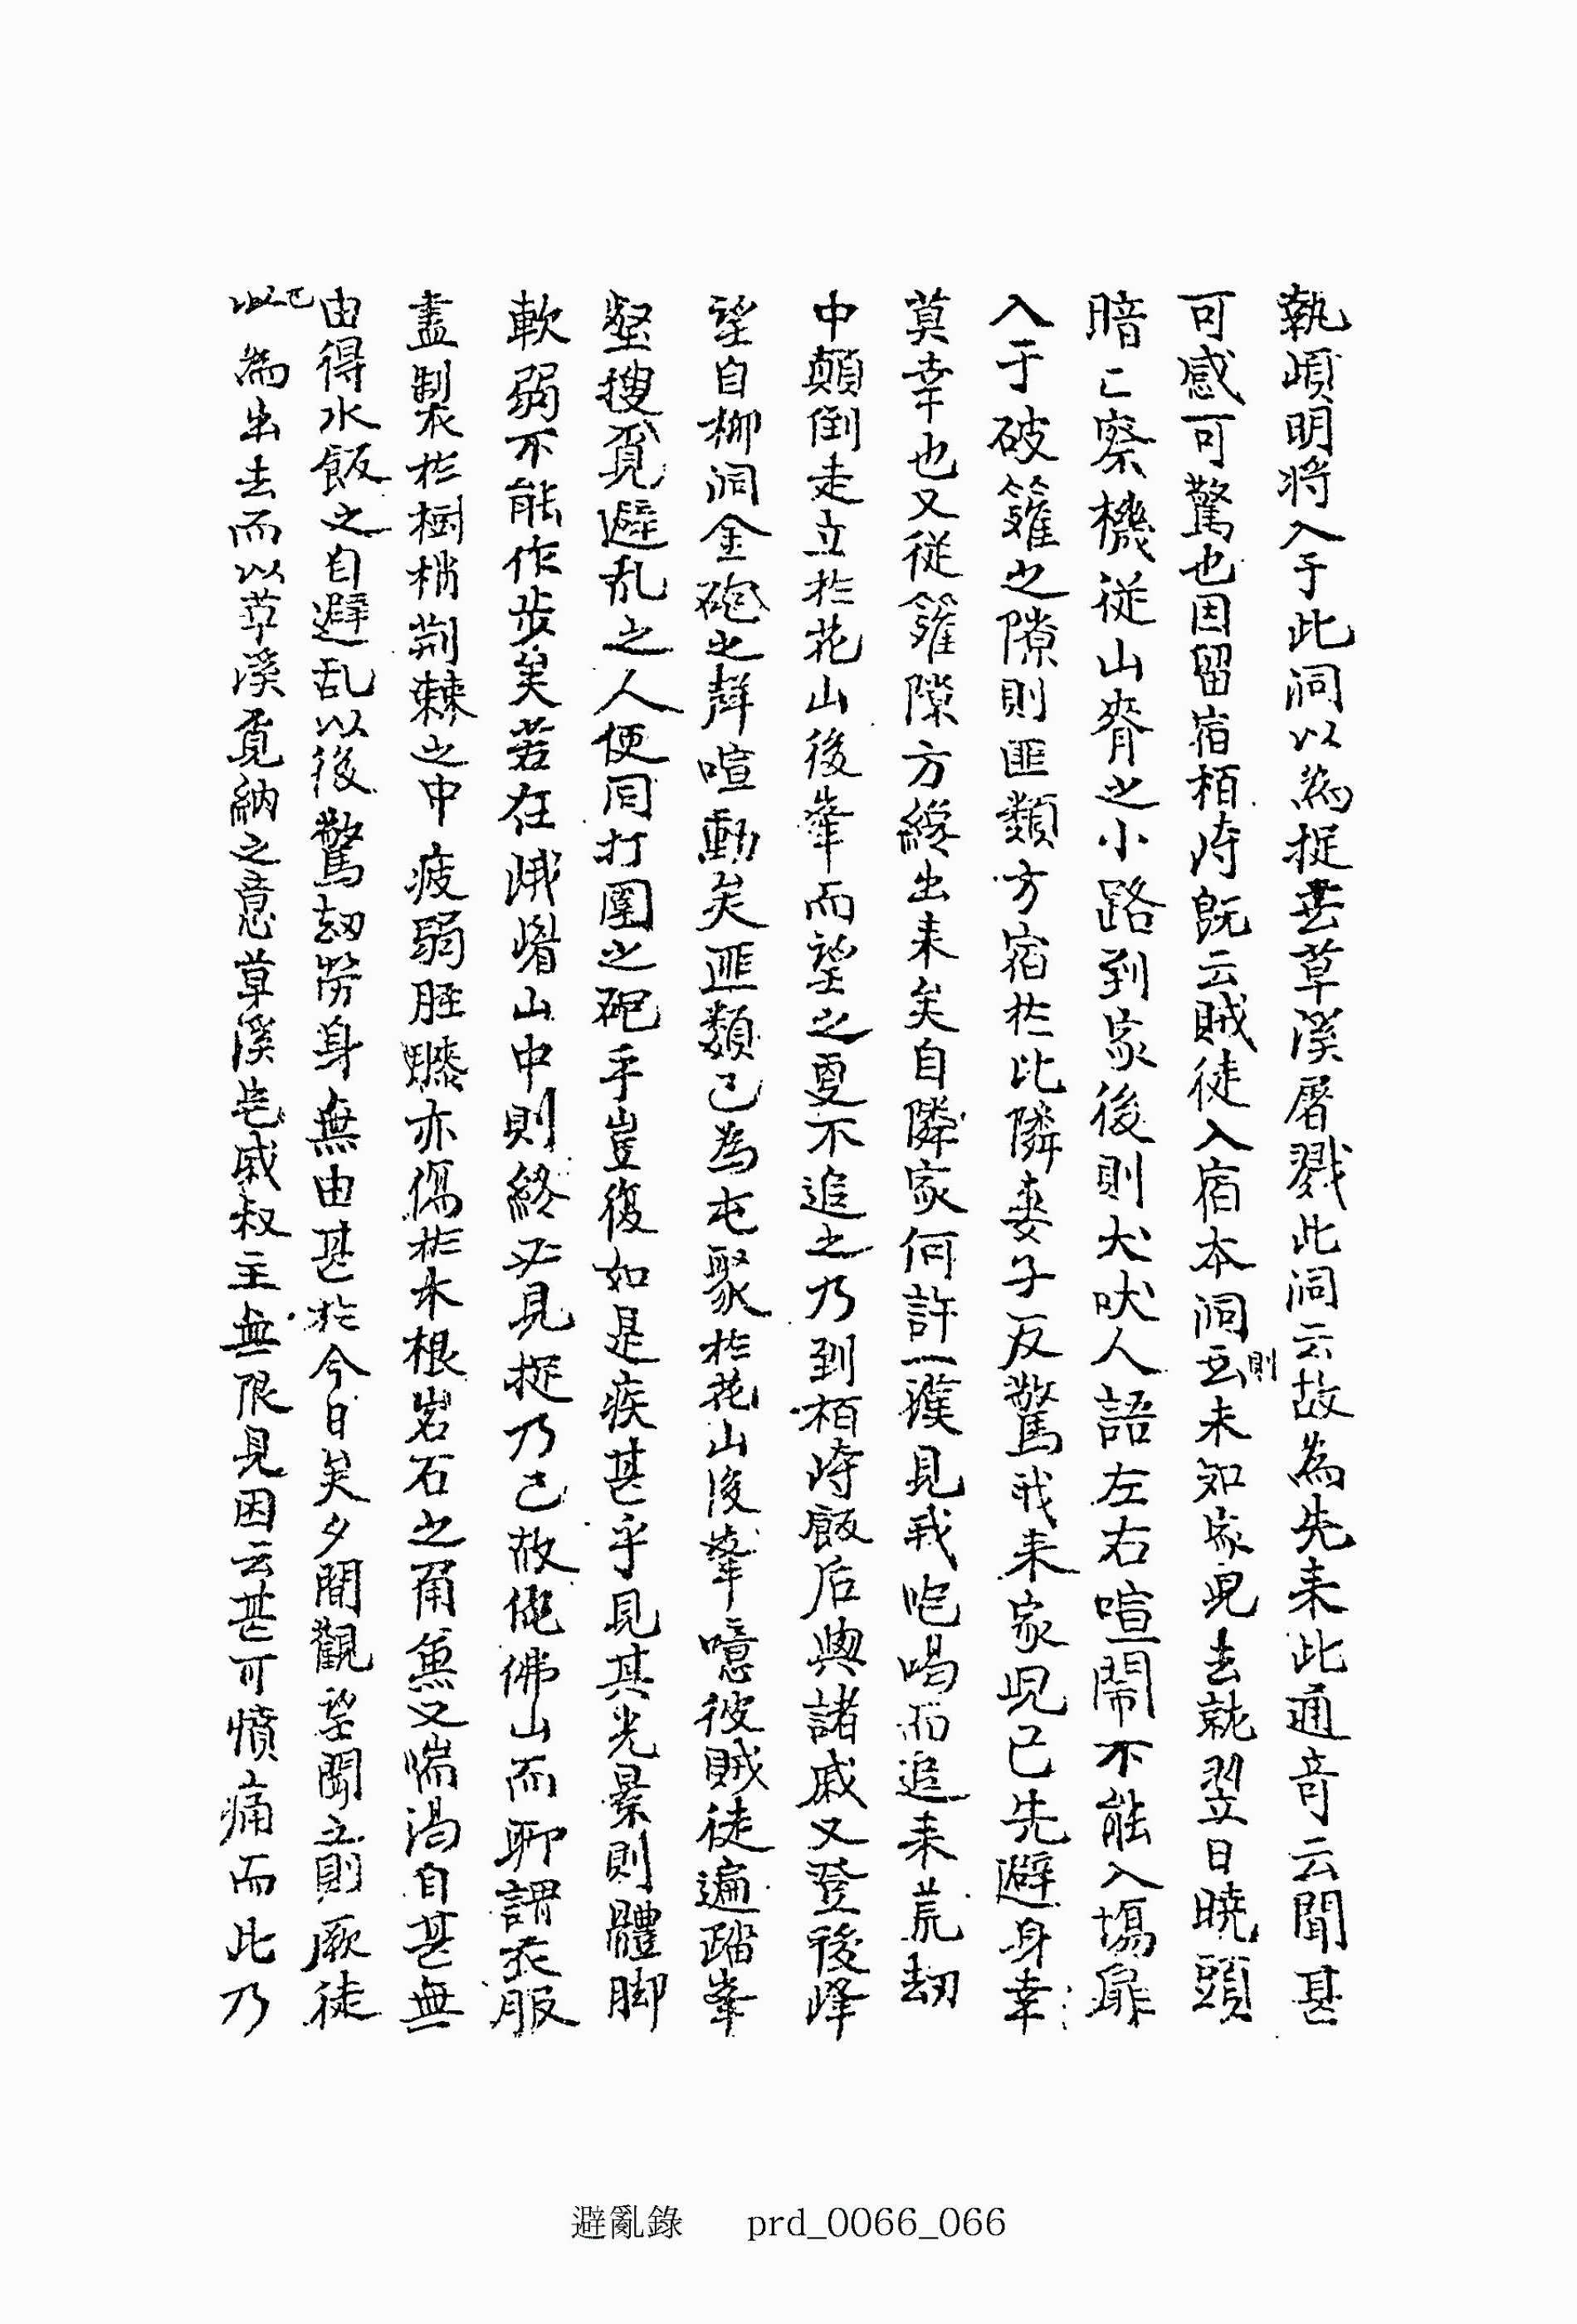 執頉明将入于此洞以為捉去草溪屠戮此洞云故為先来此通奇云聞甚
可感可驚也因留宿栢峙既云賊徒入宿本洞云則未知家兒去就翌日曉頭
暗〻察機従山脊之小路到家後則犬吠人語左右喧鬧不能入塲扉
入于破籬之隙則匪類方宿於比隣妻子反驚我来家児已先避身幸
莫幸也又従籬隙方纔出来矣自隣家何許一漢見我咆喝而追来荒刼
中顛倒走立於花山後峯而望之更不追之乃到栢峙飯后與諸戚又登後峰
望自柳洞金砲之聲喧動矣匪類已為屯聚於花山後峯噫彼賊徒遍踏峯
壑搜覓避乱之人便同打圍之砲手豈復如是疾甚乎見其光景則體脚
軟弱不能作歩矣若在峨嵋山中則終必見捉乃已故仙佛山而聊謂衣服
盡製於樹梢荊棘之中疲弱胫膝亦傷於木根岩石之角兼又喘渴自甚無
由得水飯之自避乱以後驚刼勞身無由甚於今日矣夕間觀望聞立則厥徒
已以為出去而以草溪覓納之意草溪宅戚叔主無限見困云甚可憤痛而此乃
避亂錄　prd_0066_066